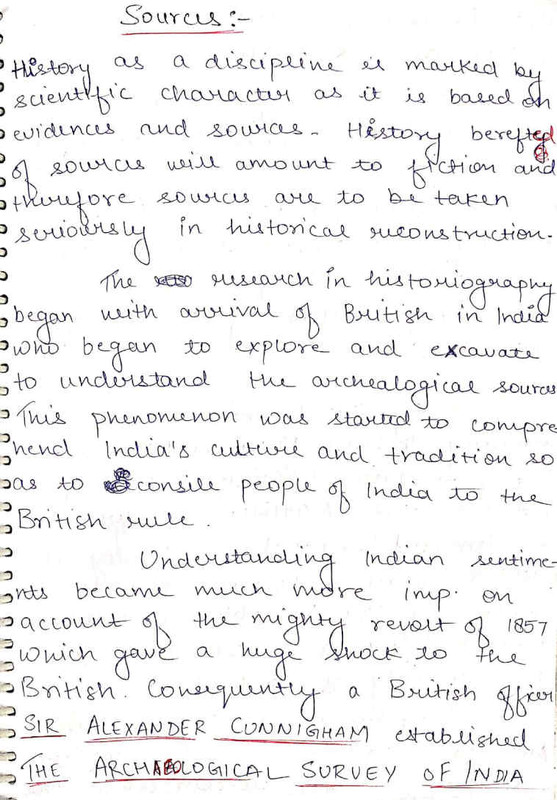 Sources :-
History as a discipline is marked by
scientific character as it is based on
evidences and sources. History berefted
of sources will amount to fiction and
therefore sources are to be taken
seriously in historical reconstruction.
The research in historiography
began with arrival of British in India
who began to explore and excavate
to understand the archealogical sources
This phenomenon was started to compre
hend India's culture and tradition so
as to consile people of India to the
British rule.
Understanding Indian sentime-
nts became much more imp. on
account of the mighty revolt of 1857
which gave a huge shock to the
British. Consequently a British officer
SIR ALEXANDER CUNNIGHAM established
THE ARCHAEOLOGICAL SURVEY OF INDIA